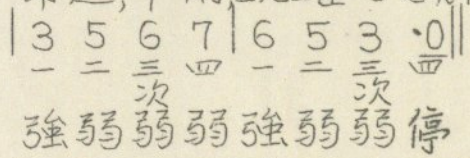 | 3 5 6 7 | 6 5 3 ·0 ||
一 二 三 四 一 二 三 四
次 次
強 弱 弱 弱 強 弱 弱 停